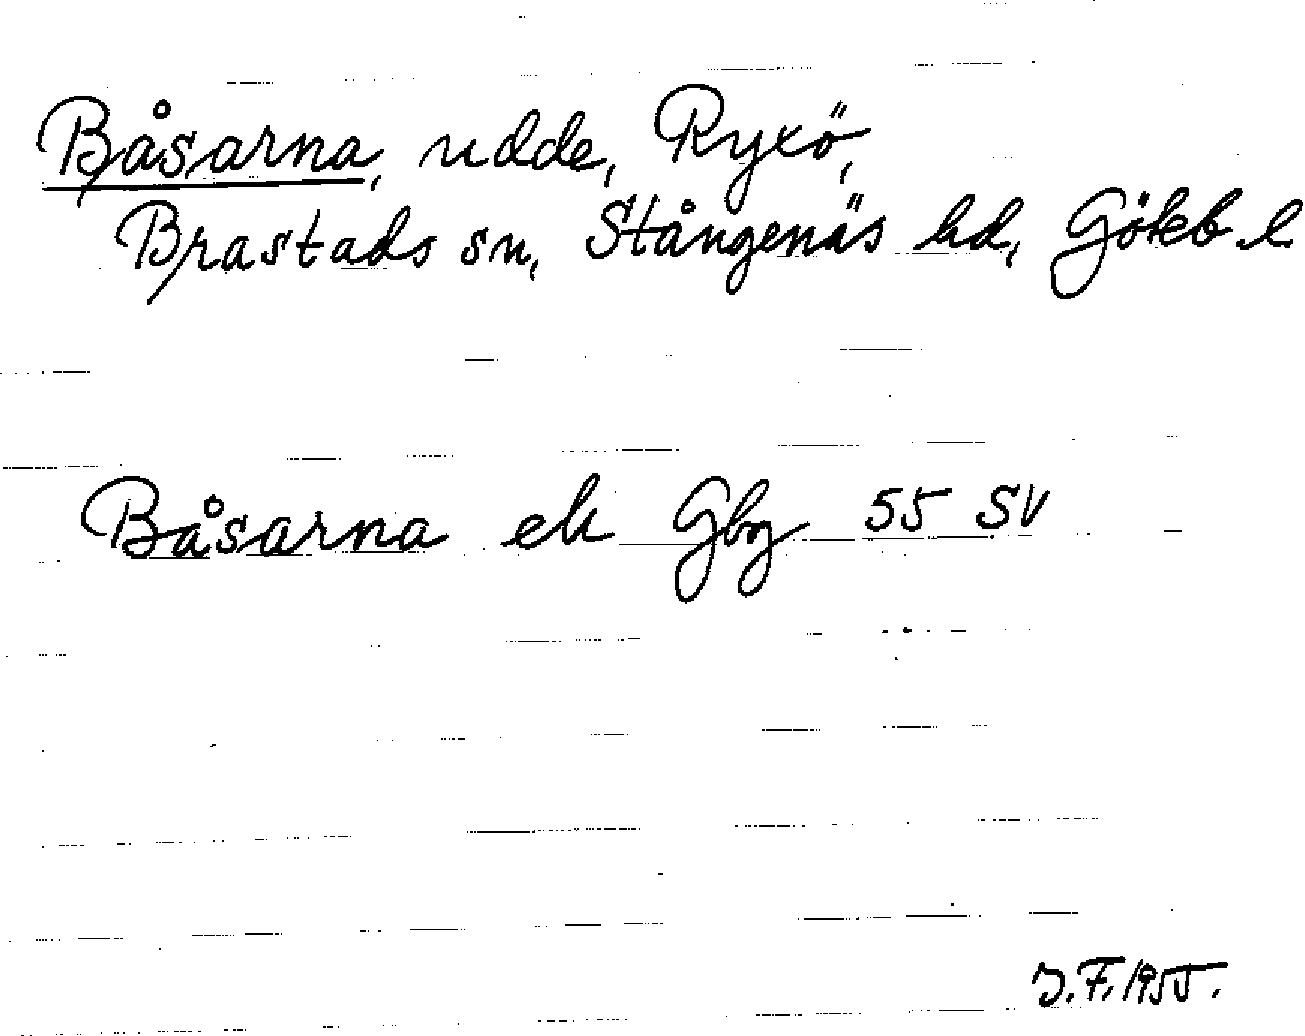 Båsarna, udde, Ryxö,
Brastads sn, Stångenäs hd, Gökb l
Båsarna ek Gbg 55 SV
J.F. 1955.